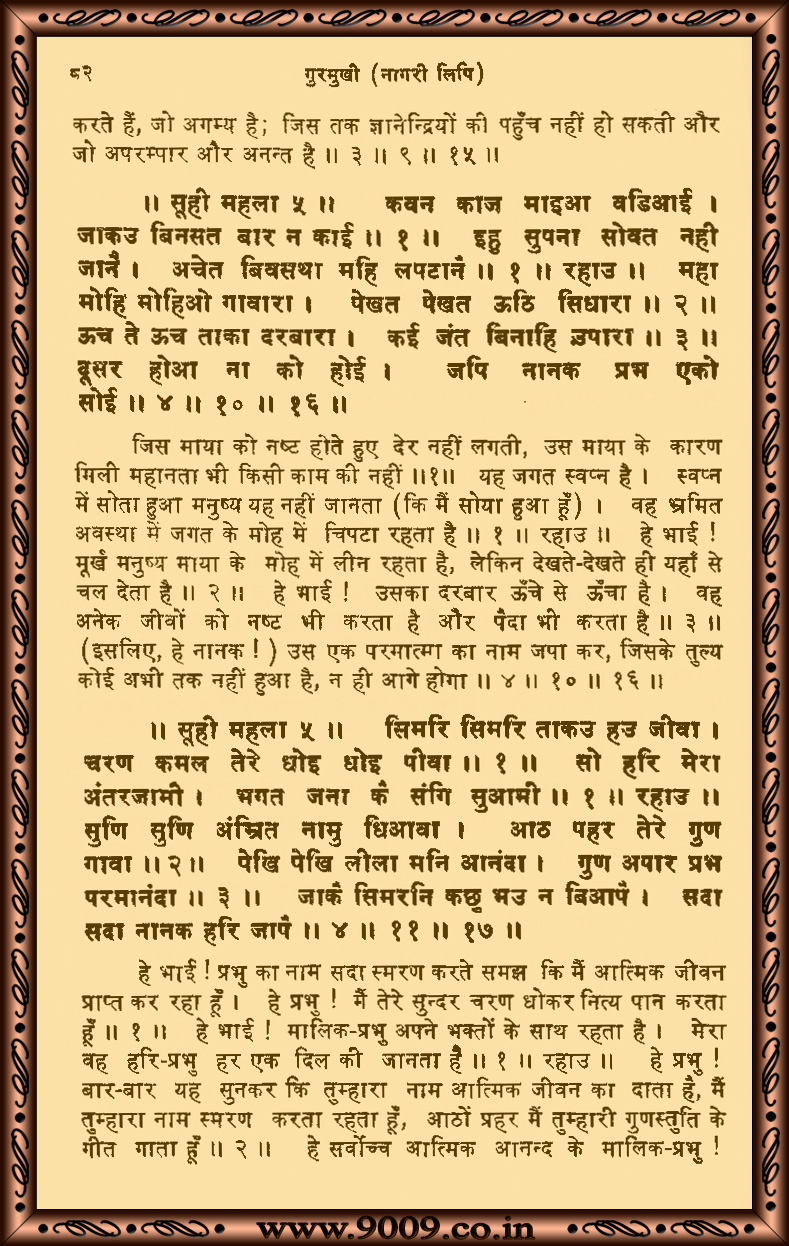 ८२ गुरमुखी (नागरी लिपि)
करते हैं, जो अगम्य है; जिस तक ज्ञानेन्द्रियों की पहुँच नहीं हो सकती और
जो अपरम्पार और अनन्त है ॥ ३ ॥ ९ ॥ १५ ॥
॥ सूही महला ५ ॥ कवन काज माइआ वडिआई ।
जाकउ बिनसत बार न काई ॥ १ ॥ इहु सुपना सोवत नही
जानै । अचेत बिवसथा महि लपटानै ॥ १ ॥ रहाउ ॥ महा
मोहि मोहिओ गावारा । पेखत पेखत ऊठि सिधारा ॥ २ ॥
ऊच ते ऊच ताका दरबारा । कई जंत बिनाहि उपारा ॥ ३ ॥
दूसर होआ ना को होई । जपि नानक प्रभ एको
सोई ॥ ४ ॥ १० ॥ १६ ॥
जिस माया को नष्ट होते हुए देर नहीं लगती, उस माया के कारण
मिली महानता भी किसी काम की नहीं ॥१॥ यह जगत स्वप्न है । स्वप्न
में सोता हुआ मनुष्य यह नहीं जानता (कि मैं सोया हुआ हूँ) । वह भ्रमित
अवस्था में जगत के मोह में चिपटा रहता है ॥ १ ॥ रहाउ ॥ हे भाई !
मूर्ख मनुष्य माया के मोह में लीन रहता है, लेकिन देखते-देखते ही यहाँ से
चल देता है ॥ २ ॥ हे भाई ! उसका दरबार ऊँचे से ऊँचा है । वह
अनेक जीवों को नष्ट भी करता है और पैदा भी करता है ॥ ३ ॥
(इसलिए, हे नानक ! ) उस एक परमात्मा का नाम जपा कर, जिसके तुल्य
कोई अभी तक नहीं हुआ है, न ही आगे होगा ॥ ४ ॥ १० ॥ १६ ॥
॥ सूही महला ५ ॥ सिमरि सिमरि ताकउ हउ जीवा ।
चरण कमल तेरे धोइ धोइ पीवा ॥ १ ॥ सो हरि मेरा
अंतरजामी । भगत जना कै संगि सुआमी ॥ १ ॥ रहाउ ॥
सुणि सुणि अंम्रित नामु धिआवा । आठ पहर तेरे गुण
गावा ॥ २ ॥ पेखि पेखि लीला मनि आनंदा । गुण अपार प्रभ
परमानंदा ॥ ३ ॥ जाकै सिमरनि कछु भउ न बिआपै । सदा
सदा नानक हरि जापै ॥ ४ ॥ ११ ॥ १७ ॥
हे भाई ! प्रभु का नाम सदा स्मरण करते समझ कि मैं आत्मिक जीवन
प्राप्त कर रहा हूँ । हे प्रभु ! मैं तेरे सुन्दर चरण धोकर नित्य पान करता
हूँ ॥ १ ॥ हे भाई ! मालिक-प्रभु अपने भक्तों के साथ रहता है । मेरा
वह हरि-प्रभु हर एक दिल की जानता है ॥ १ ॥ रहाउ ॥ हे प्रभु !
बार-बार यह सुनकर कि तुम्हारा नाम आत्मिक जीवन का दाता है, मैं
तुम्हारा नाम स्मरण करता रहता हूँ, आठों प्रहर मैं तुम्हारी गुणस्तुति के
गीत गाता हूँ ॥ २ ॥ हे सर्वोच्च आत्मिक आनन्द के मालिक-प्रभु !
www.9009.co.in